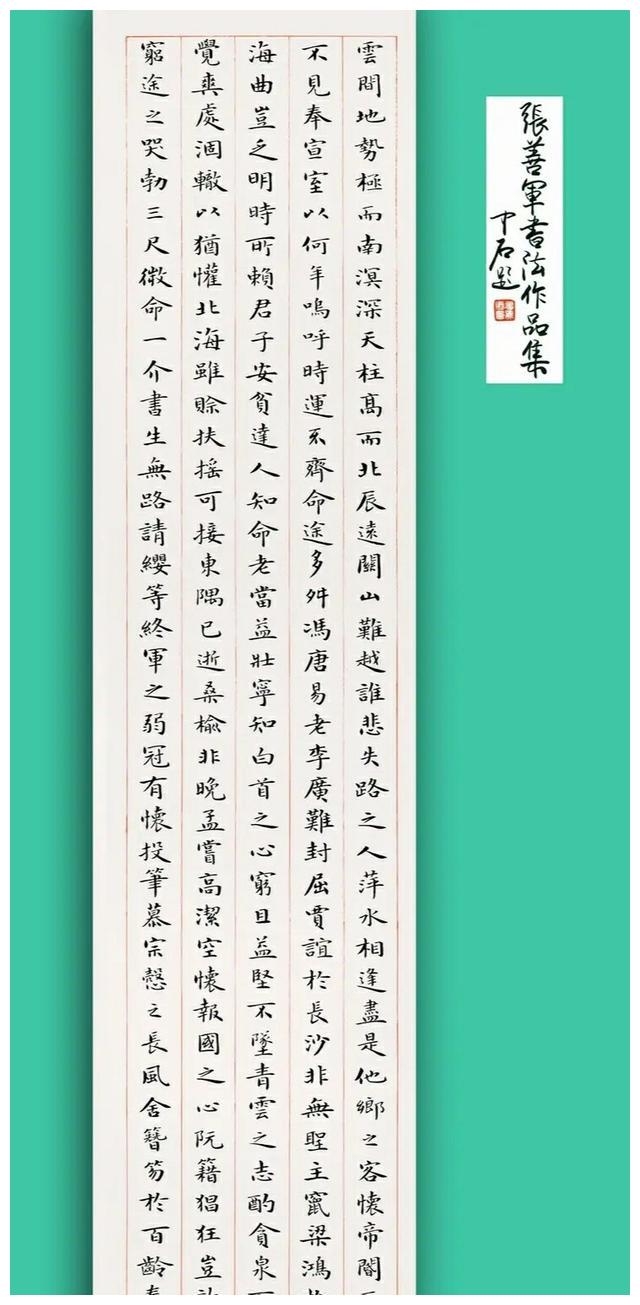 張善軍書法作品集
中石題
雲間地勢極而南溟深天柱高而北辰遠關山難越誰悲失路之人萍水相逢盡是他鄉之客懷帝閽
不見奉宣室以何年嗚呼時運不齊命途多舛馮唐易老李廣難封屈賈誼於長沙非無聖主竄梁鴻
海曲豈乏明時所賴君子安貧達人知命老當益壯寧知白首之心窮且益堅不墜青雲之志酌貪泉
覺爽處涸轍以猶懽北海雖賒扶搖可接東隅已逝桑榆非晚孟嘗高潔空懷報國之心阮籍猖狂豈
窮途之哭勃三尺微命一介書生無路請纓等終軍之弱冠有懷投筆慕宗愨之長風舍簪笏於百齡